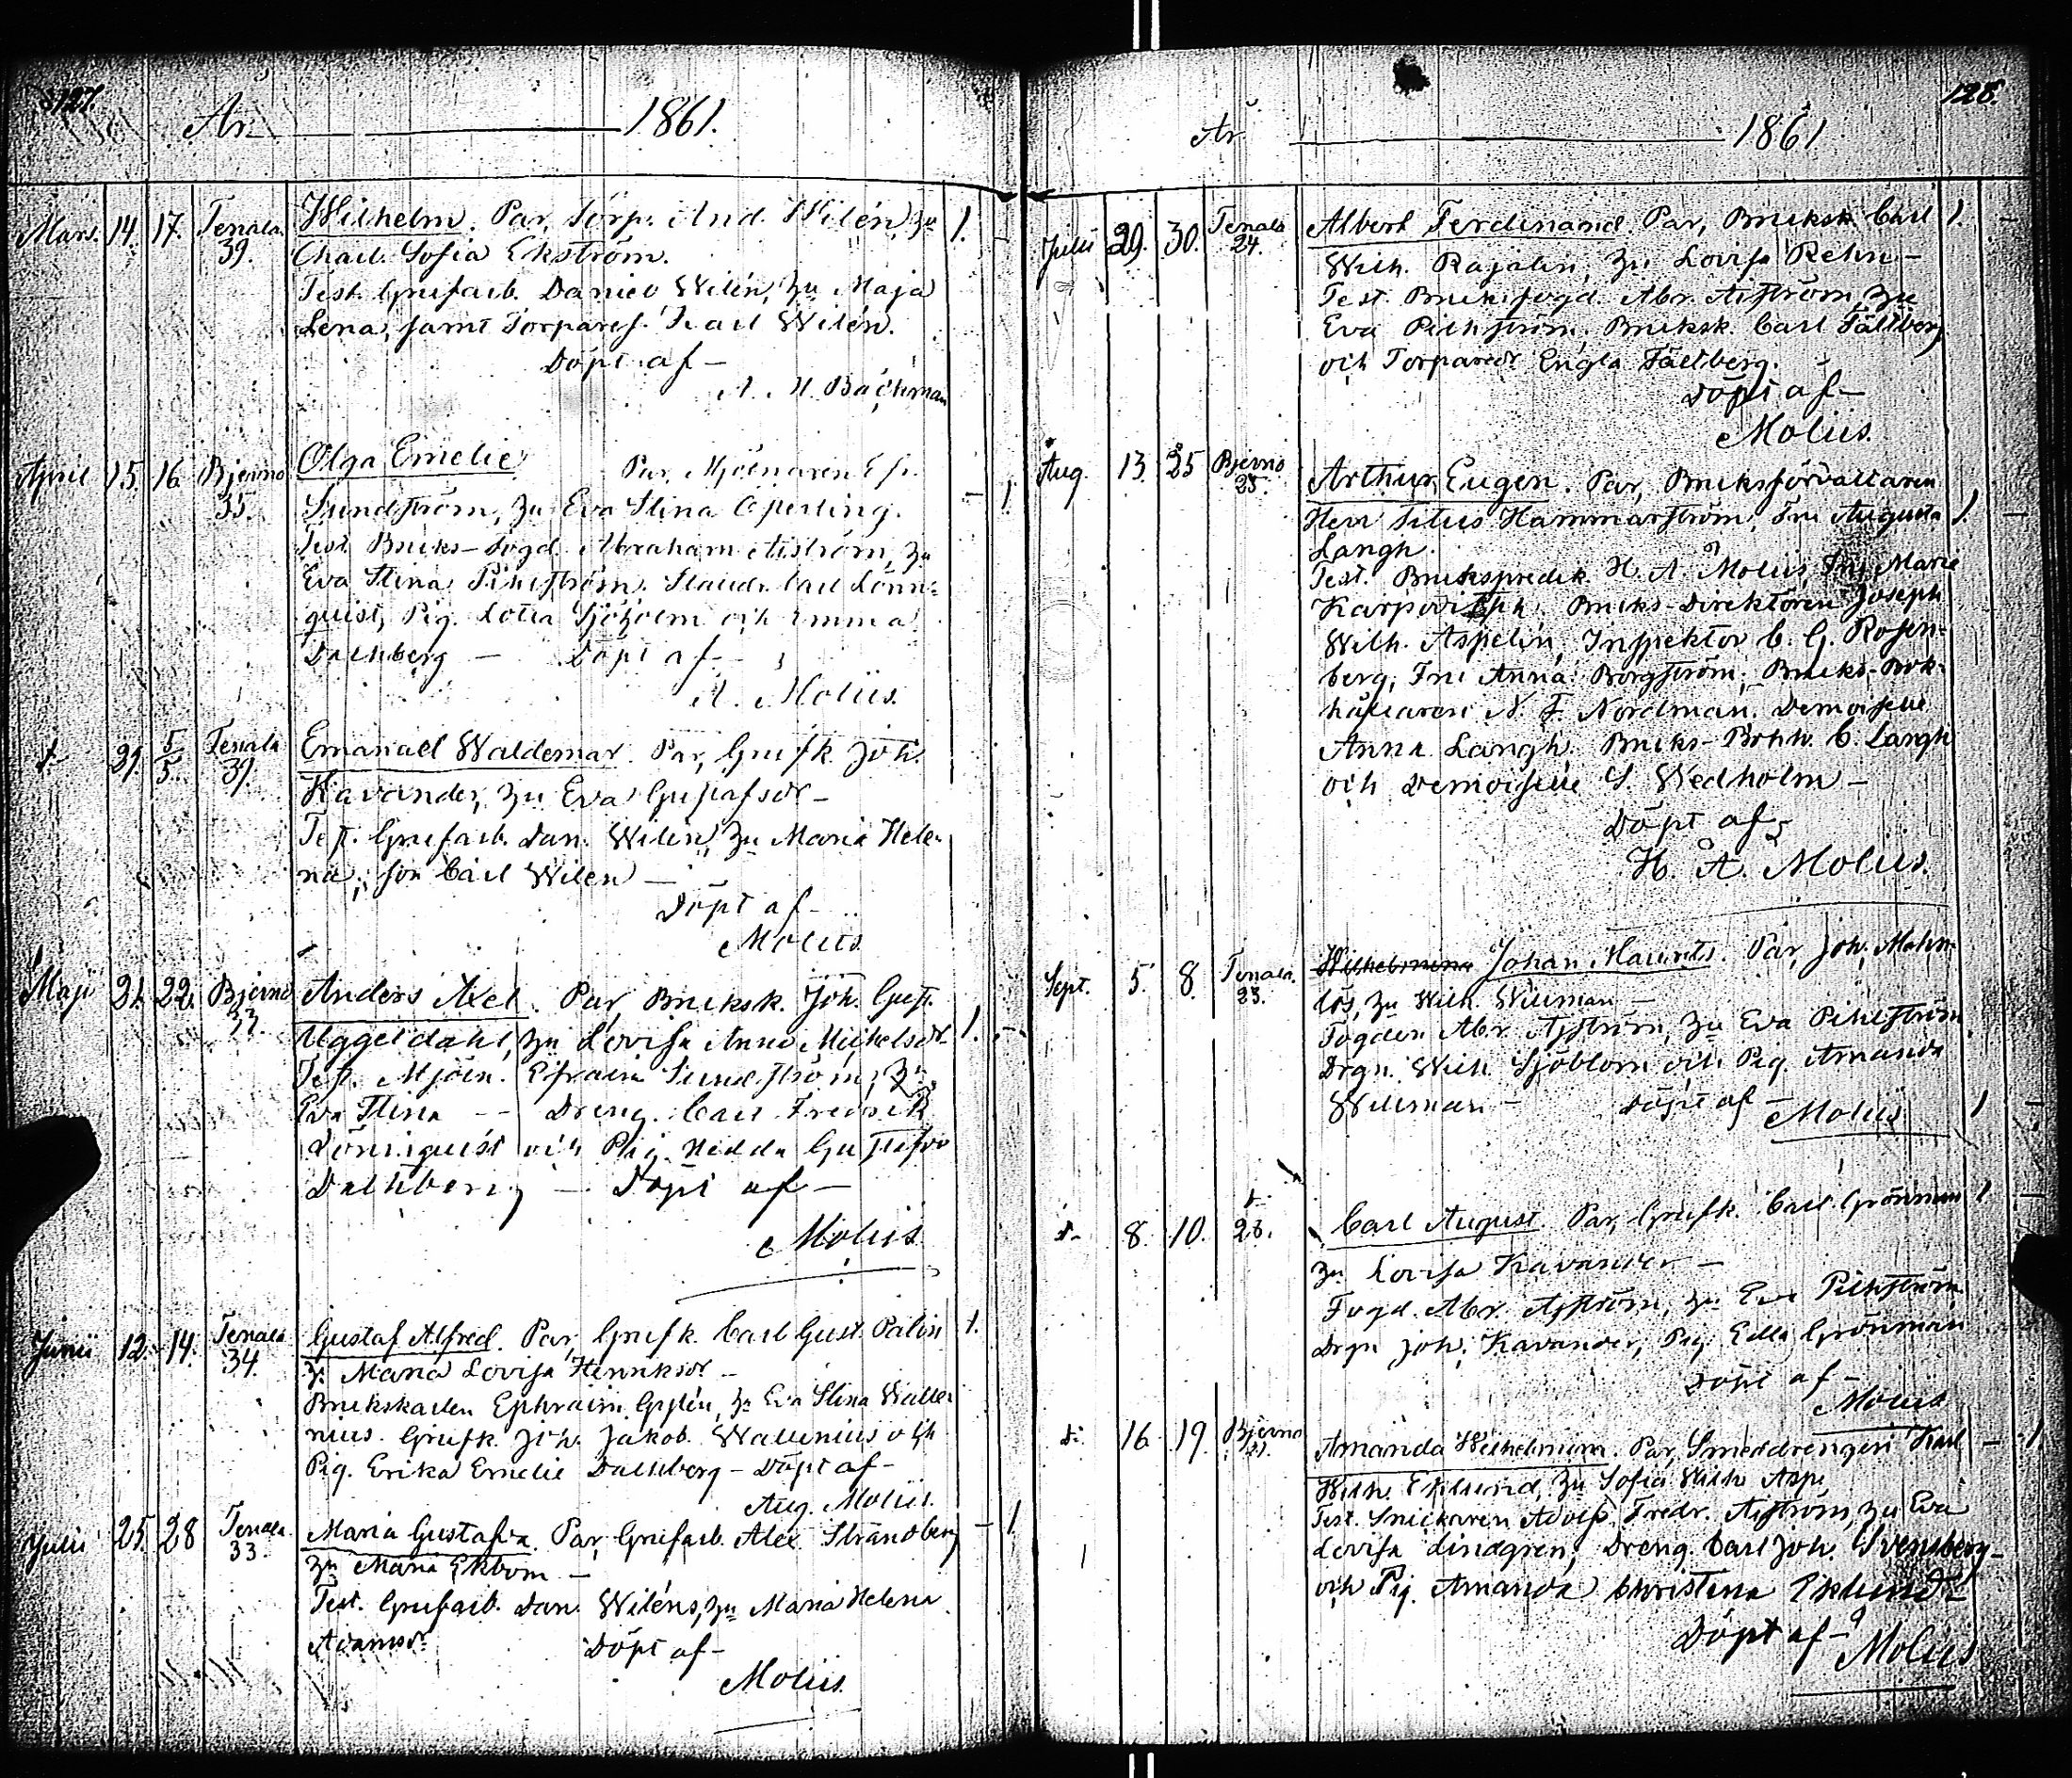 127.
År 1861.
Mars. 14. 17. Tenala 39. Wilhelm. Par, Torp. And. Wilén, hu
Charl. Sofia Ekström.
Test. Grufarb. Daniel Wilén, hu Maja
Lena, samt Torpares. Karl Wilén.
Döpt af –
A. H. Bachman
April 15. 16. Bjerno 35. Olga Emelie Par, Mjölnaren Ef.
Sundström, hu Eva Stina Sperling.
Test. Bruks-Fogd. Abraham Aström, hu
Eva Stina Pihlström. Carl Lönn-
quist, Pig. Lotta Sjöholm och Emma
Dahlberg – Döpt af –
A. Molüs.
d– 29. 5/5. Tenala 39. Emanuel Waldemar. Par, Grufk. Joh.
Kavander, hu Eva Gustafsdr –
Test. Grufarb. Dan. Wilén, hu Maria Hele-
na, son Carl Wilén –
Döpt af –
Molüs.
Maji 21. 22. Bjerno 33. Anders Axel. Par, Bruksk. Joh. Gust.
Uggeldahl, hu Lovisa Anna Michelsdr
Test. Mjöln. Efraim Sundström, hu
Eva Stina – – Dreng. Carl Fredrik
Lönnquist och Pig. Hedda Gustafva
Dahlberg – Döpt af –
Molüs
Junii 12. 14. Tenala 34. Gustaf Alfred. Par, Grufk. Carl Gust. Palin 1.
h. Maria Lovisa Henriksdr –
Brukskarlen Ephraim Gyllén, hu Eva Stina Walle-
nius. Grufk. Joh. Jakob Wallenius och
Pig. Erika Emelie Dahlberg – Döpt af –
Aug. Molüs.
Julii 25. 28 Tenala 33. Maria Gustafva. Par, Grufarb. Alex. Strandberg – 1
hu Maria Ekbom –
Test. Grufarb. Dan. Wiléns, hu Maria Helena
Adamsdr Döpt af –
Molüs.
128.
År 1861
Julii 29. 30. Tenala 24. Albert Ferdinand. Par, Bruksk. Carl 1. –
Wilh. Rajalin, hu Lovisa Rehn –
Test. Bruksfogd. Abr. Aström, hu
Eva Pihlström, Bruksk. Carl Fältberg
och Torparedr Engla Fältberg.
Döpt af –
Molüs.
Aug. 13. 25 Bjerno 25. Arthur Eugen. Par, Bruksförvaltaren
Herr Titus Hammarström, Fru Augusta 1. –
Langh.
Test. Brukspredik. H. A. Molüs, Fru Marie
Bruks-Direktören Joseph
Wilh. Aspelin, Inspektor C. G. Rosen-
berg, Fru Anna Borgström, Bruks-Bok-
hållaren N. F. Nordman, Demoiselle
Anna Langh. Bruks-Bokh. C. Langh
och Demoiselle S. Wedholm –
Döpt af
H. A. Molüs.
Sept. 5. 8. Tenala 23. Wilhelmina Johan Mauritz. Par, Joh. Malm-
lös, hu Wilh. Willman –
Fogden Abr. Aström, hu Eva Pihlström
Drgn. Wilh. Sjöblom och Pig. Amanda
Willman – Döpt af – Molüs 1 –
d– 8. 10. d– 28. Carl August. Par, Grufk. Carl Grönman 1 –
hu Lovisa Kavander –
Fogd. Abr. Aström, hu Eva Pihlström
Drgn Joh. Kavander, Pig. Edla Grönman
Döpt af –
Molüs
d– 16. 19. Bjerno 21. Amanda Wilhelmina. Par, Smeddrengen Karl – 1.
Wilh. Eklund, hu Sofia Wilh. Aspe
Test. Snickaren Adolf Fredr. Aström, hu Eva
Lovisa Lindgren, Dreng. Carl Joh. Svensberg –
och Pig. Amanda Christina Eklund –
Döpt af –
Molüs